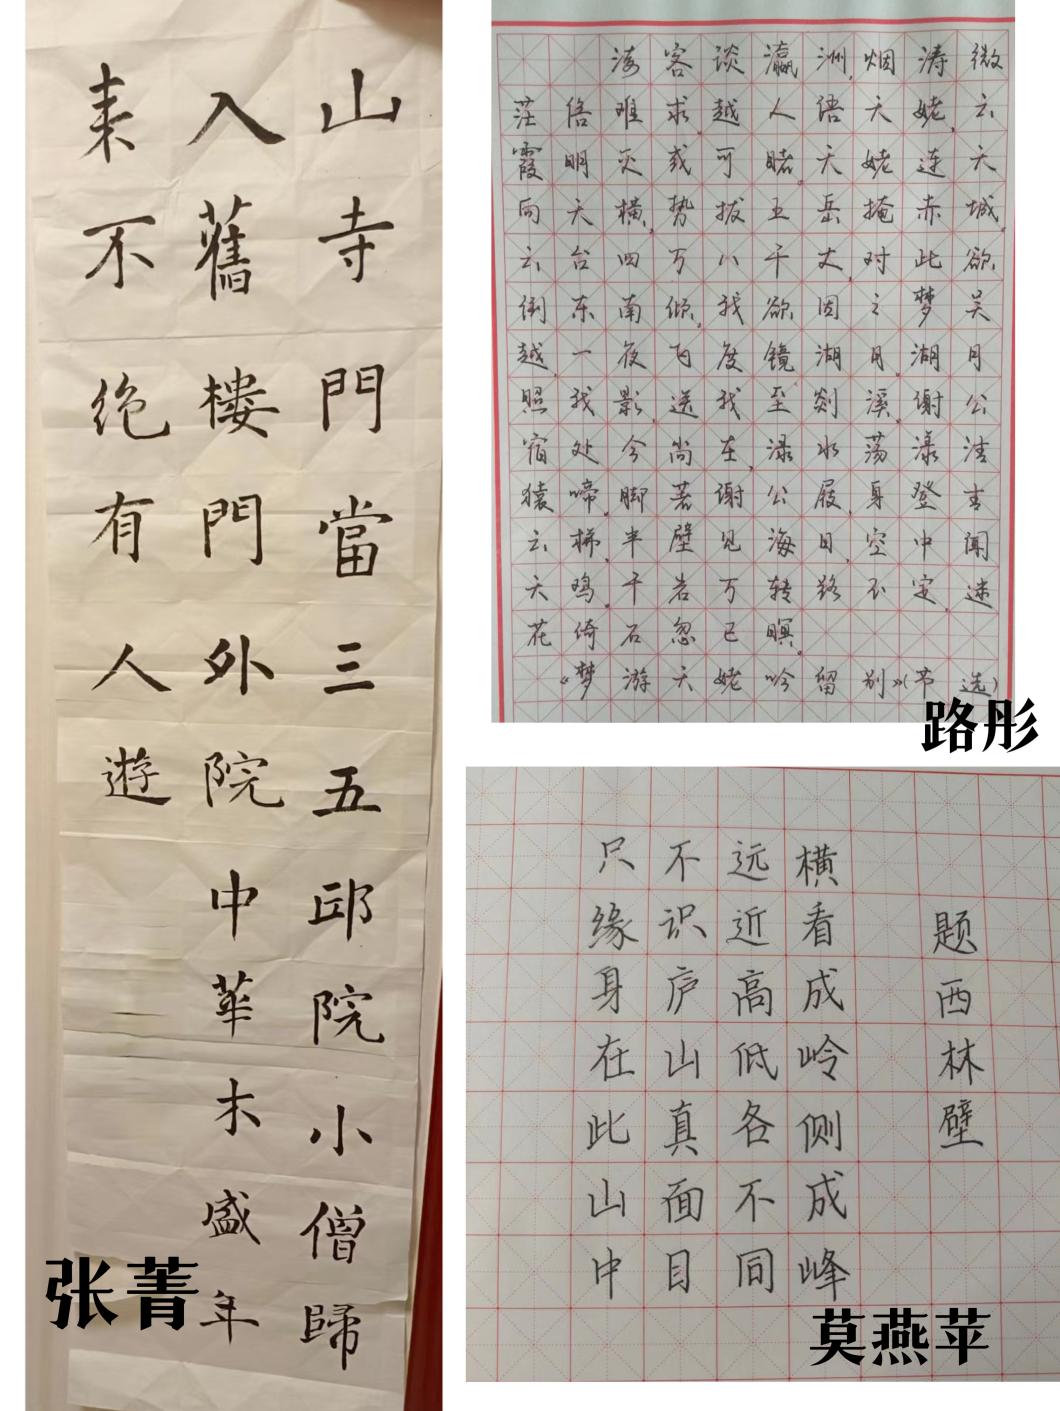 山寺門當三五邱院小僧歸
入舊樓門外院中華木盛年
来不绝有人遊
张菁
海客谈瀛洲,烟涛微
茫信难求,越人语天姥,云
霞明灭或可睹。天姥连天
向天横,势拔五岳掩赤城。
云台四万八千丈,对此欲
倒东南倾。我欲因之梦吴
越,一夜飞度镜湖月。湖月
照我影,送我至剡溪。谢公
宿处今尚在,渌水荡漾清
猿啼。脚著谢公屐,身登青
云梯。半壁见海日,空中闻
天鸡。千岩万转路不定,迷
花倚石忽已暝。
《梦游天姥吟留别》(节选)
路彤
题西林壁
横看成岭侧成峰
远近高低各不同
不识庐山真面目
只缘身在此山中
莫燕苹